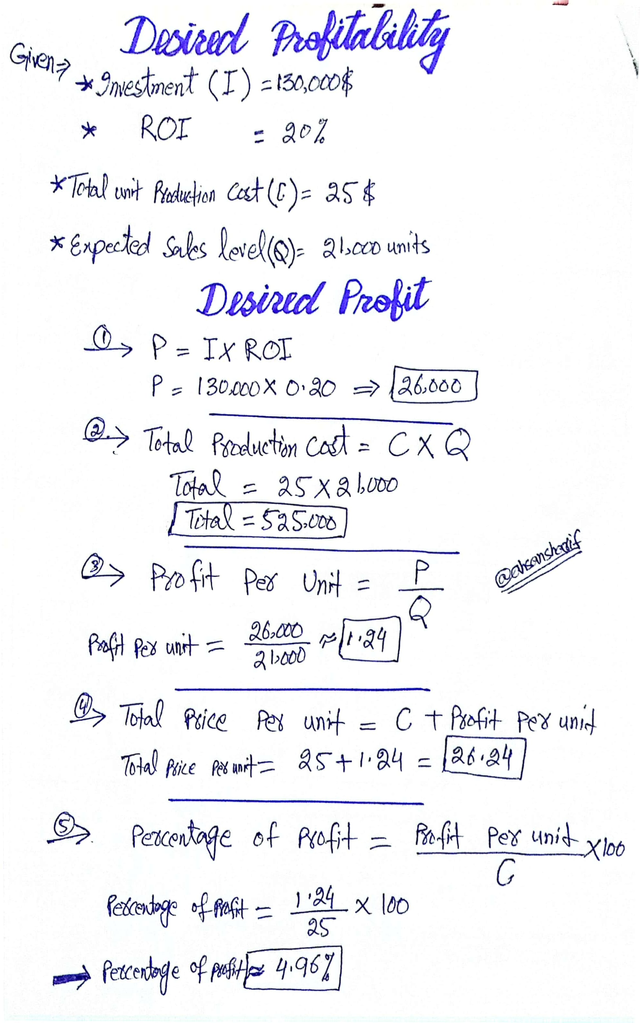 Desired Profitability
Given ⇒
* Investment (I) = 130,000$
* ROI = 20%
* Total unit Production Cost (C) = 25 $
* Expected Sales level (Q) = 21,000 units
Desired Profit
① → P = I X ROI
P = 130,000 X 0.20 ⇒ 26,000
②. → Total Production Cost = C X Q
Total = 25 X 21,000
Total = 525,000
③ → Profit Per Unit = P / Q
@ahsansharif
Profit Per unit = 26,000 / 21,000 ≈ 1.24
④ → Total Price Per unit = C + Profit Per unit
Total Price Per unit = 25 + 1.24 = 26.24
⑤ → Percentage of Profit = Profit Per unit / C X 100
Percentage of Profit = 1.24 / 25 X 100
→ Percentage of profit ≈ 4.96%